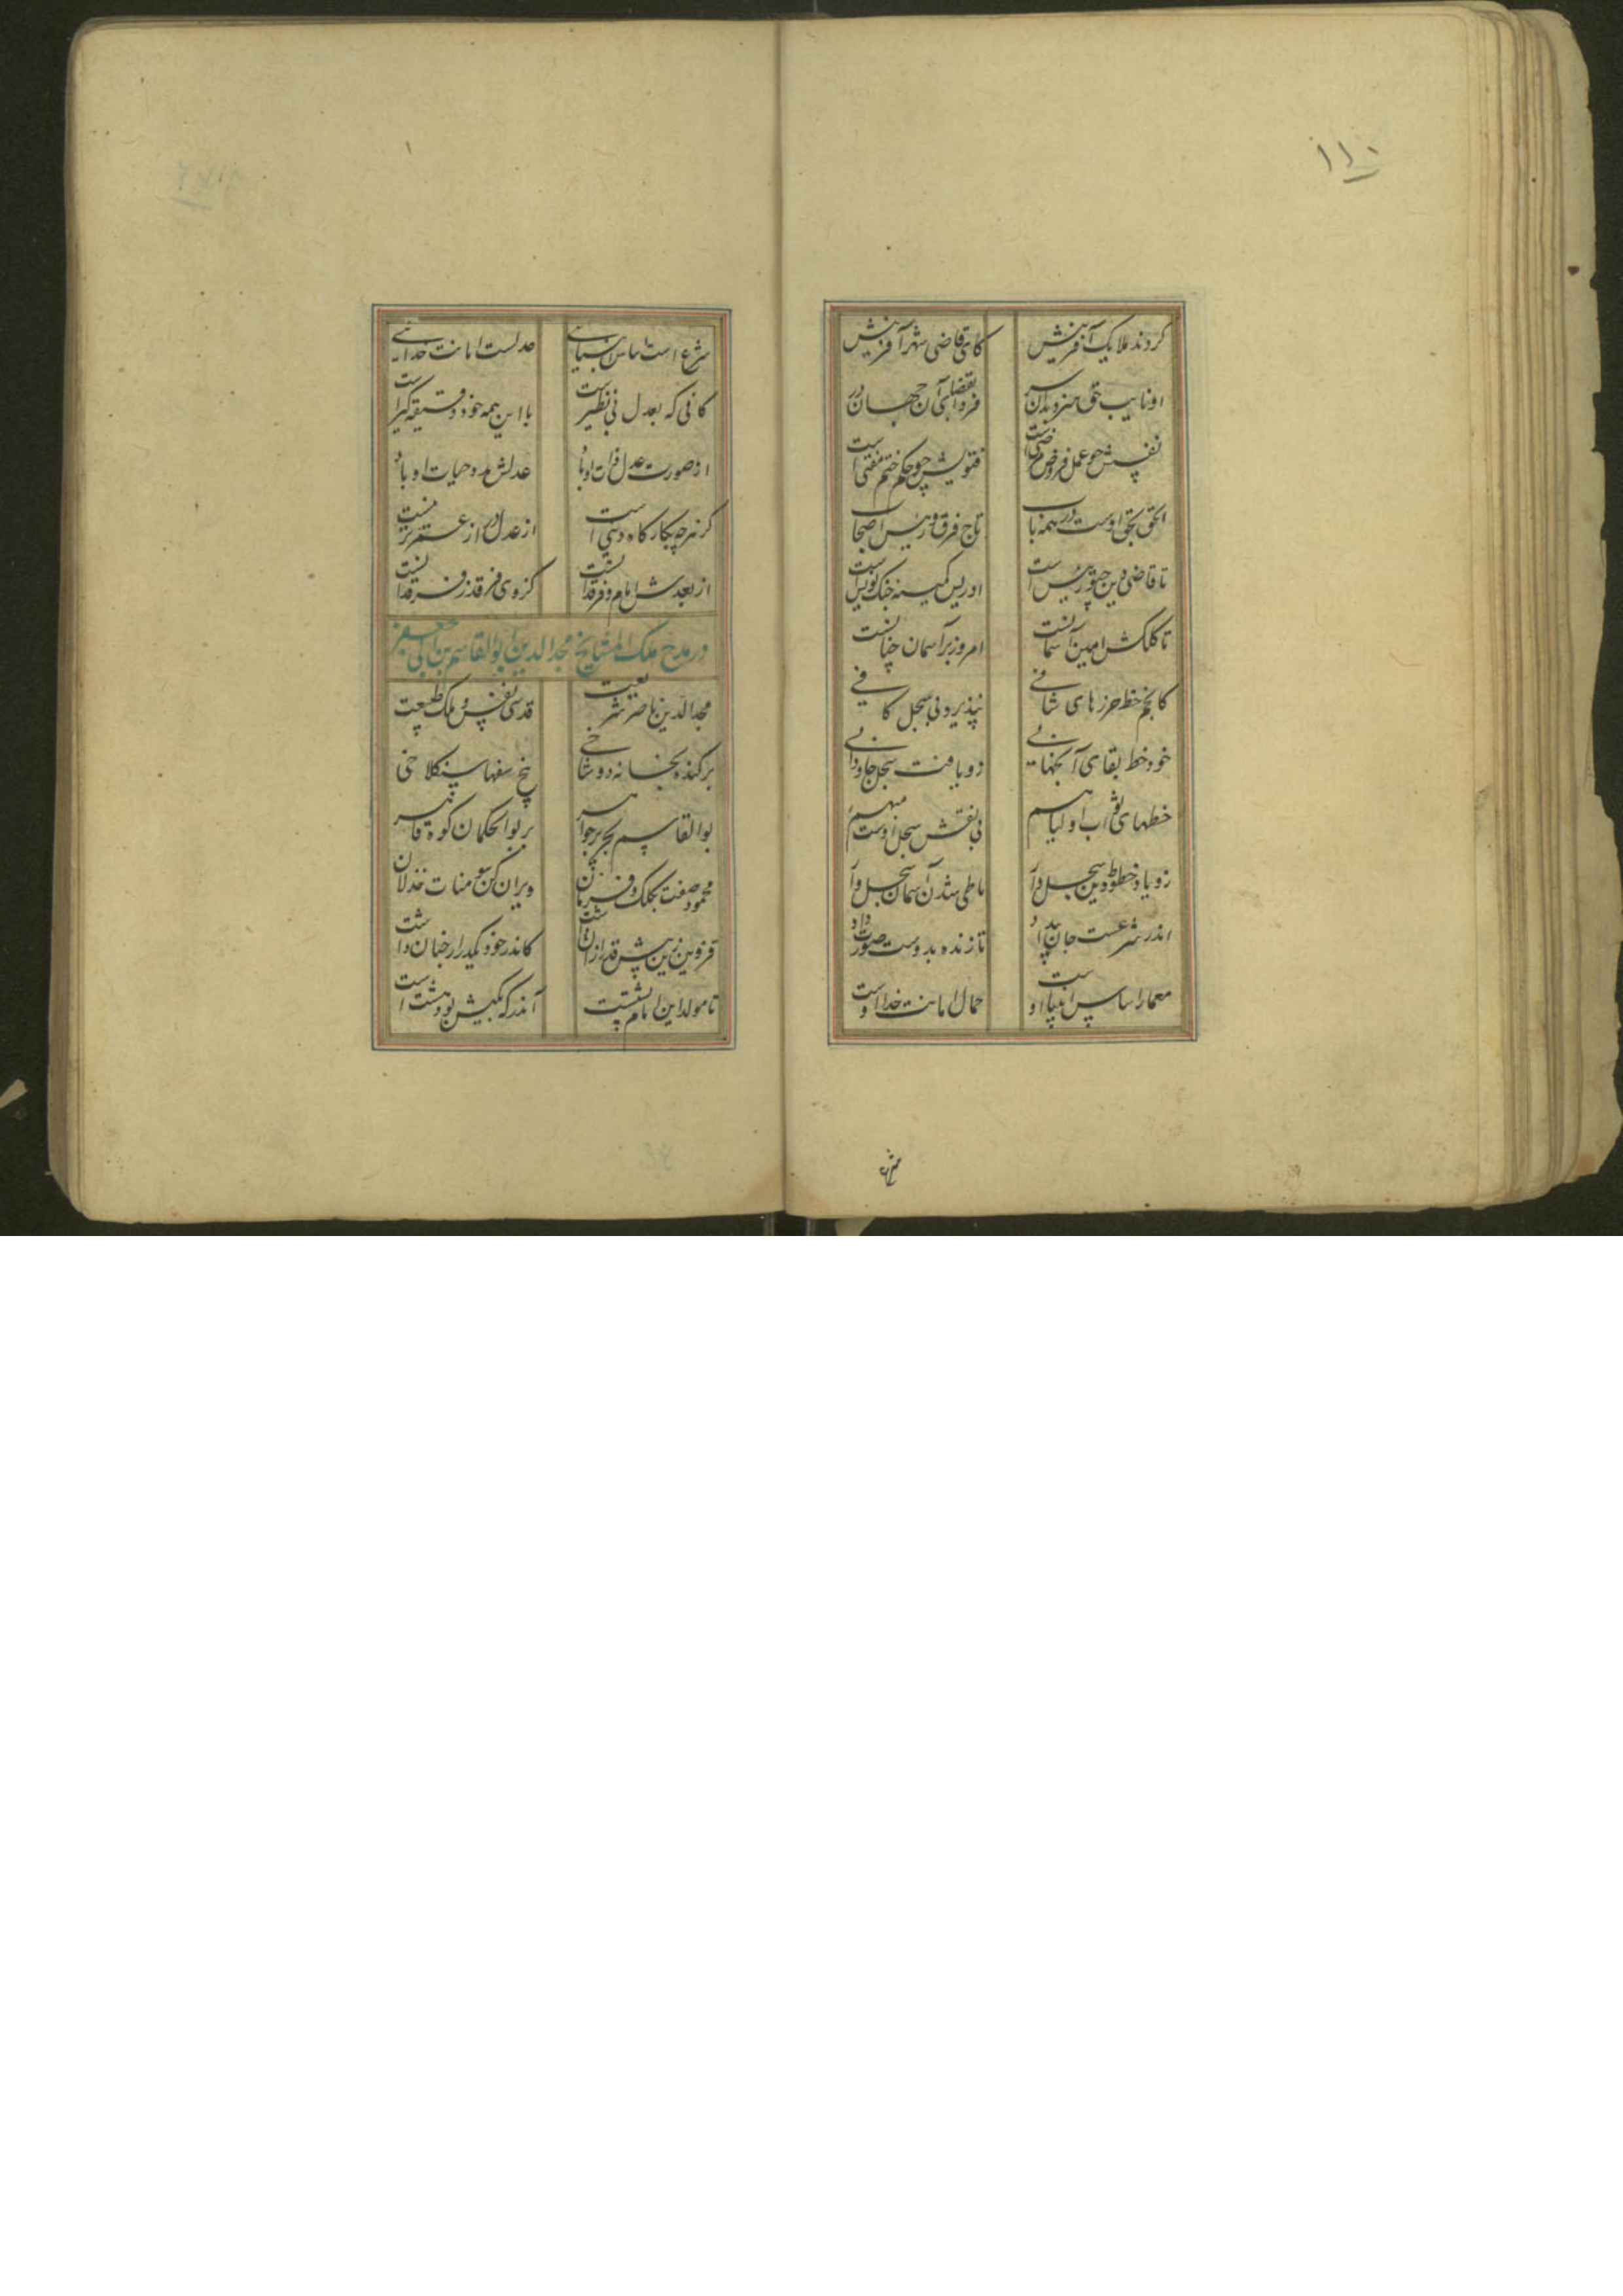 ۱۱۰
کردند ملایک آفرینش کای قاضی شهر آفرینش
او نایب حق جزو بدان سر فردا بقضای آن جهان در
نفسش چو عمل فروض مرضی است فتویش چو حکم ختم مفتی است
الحق بحق اوست در همه باب تاج فرق و رئیس اصحاب
تا قاضی دین چنو رئیس است ادریس کمینه خنک کویس است
تا کلکش امین آسمانست امروز بر آسمان چنانست
کانجم خط حرزهای شافی نپذیرد بی سجل کافی
خود خط بقای آنجهانی زو یافت سجل جاودانی
خطهای ثواب اولیا هم بی نقش سجل اوست مبهم
زو یاد خطوط دین سجل دار تا طی شدن آسمان سجل وار
اندر شرعست جان پدید او تا زنده بدوست صورت داد
معمار اساس انبیا اوست حمال امانت خدا اوست
شرع
شرع است اساس انبیائی عدلست امانت خدائی
کافی که بعدل بی نظیر است با این همه خود دقیقه گیر است
از صورت عدل ذات او باد عدلش مدد حیات او باد
گر نه چه بکارگاه دنیی است از عدل در از عمر تر نیست
از بعدش امام فرقدانست کز وی فر قدر فرقدانست
در مدح ملک المشایخ مجد الدین ابوالقاسم بن ابی جعفر
مجد الدین ناصر شریعت قدسی نفس و ملک طبیعت
برکنده بخانه دو شاخی بیخ سفهای سنکلاخی
بوالقاسم بحر پر جواهر بر بوالحکمان کوه قاهر
محمود صفت بکلک و فرمان ویران کن سومنات خذلان
قزوین زین پیش قدر ازان داشت کاندر خود یکدر از جنان داشت
تا مولد این امام پشتست آندر که یکیش بود هشت است